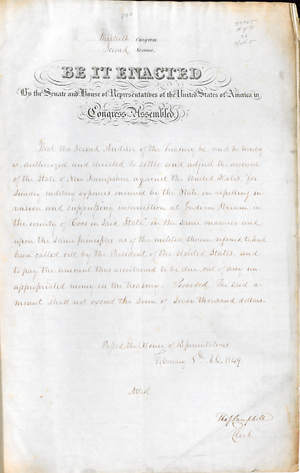 Thirtieth Congress
Second Session.
BE IT ENACTED
By the Senate and House of Representatives of the United States of America in
Congress Assembled
That the Second Auditor of the Treasury be, and he hereby
is, authorized and directed to settle and adjust the account
of the State of New Hampshire against the United States "for
sundry military expenses incurred by the State in repelling in-
vasion and suppressing insurrection at Indian Stream, in
the county of Coos in said State" in the same manner and
upon the same principles as if the militia therein referred to had
been called out by the President of the United States; and
to pay the amount thus ascertained to be due out of any un-
appropriated money in the treasury: Provided, The said a-
mount shall not exceed the sum of seven thousand dollars.
Passed the House of Representatives
February 5th A.D. 1849.
Attest
Tho J Campbell
Clerk